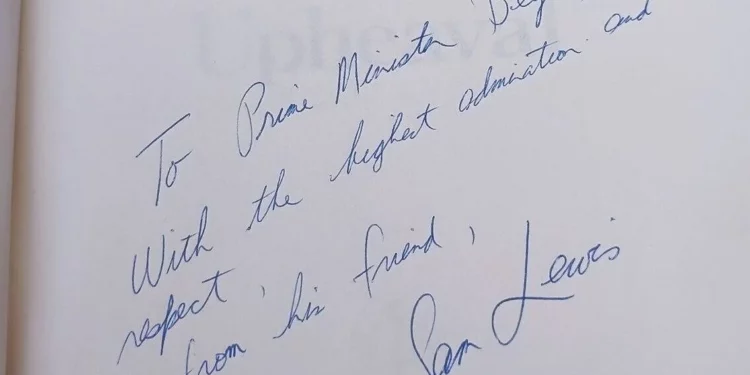 To Prime Minister
With the highest admiration and
respect,
from his friend,
Sam Lewis